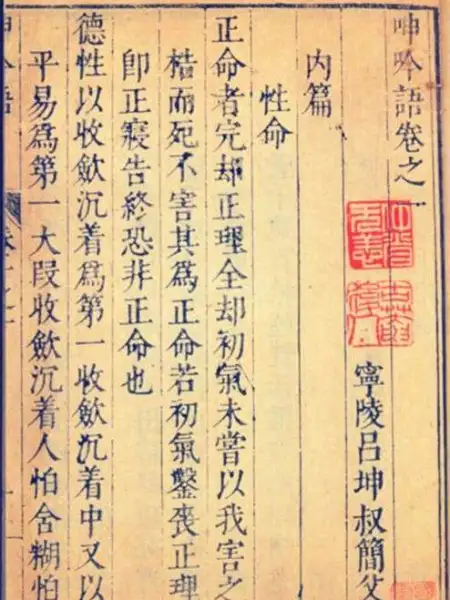 呻吟語卷之一
寧陵呂坤叔簡父
內篇
性命
正命者完却正理全却初氣未嘗以我害之
桎而死不害其為正命若初氣鑿喪正理
卽正寢告終恐非正命也
德性以收歛沉着為第一收歛沉着中又以
平易為第一大叚收歛沉着人怕含糊怕
呻吟語